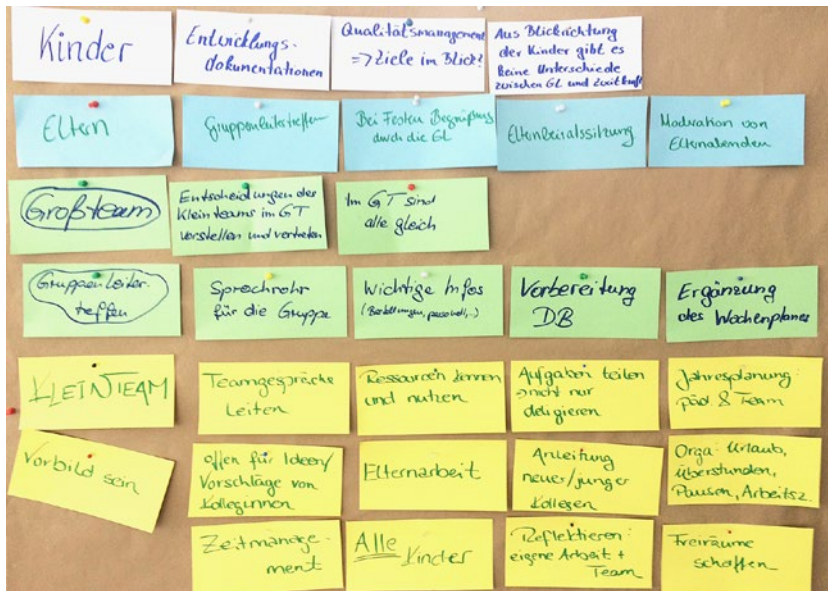 Kinder
Entwicklungs-
dokumentationen
Qualitätsmanagement
=> Ziele im Blick?
Aus Blickrichtung
der Kinder gibt es
keine Unterschiede
zwischen GL und Zweitkraft
Eltern
Gruppenleitertreffen
Bei Festen Begrüßung
durch die GL
Elternbeiratssitzung
Moderation von
Elternabenden
Großteam
Entscheidungen des
Kleinteams im GT
vorstellen und vertreten
Im GT sind
alle gleich
Gruppenleiter-
treffen
Sprachrohr
für die Gruppe
Wichtige Infos
(Bestellungen, personell,..)
Vorbereitung
DB
Ergänzung
des Wochenplanes
KLEINTEAM
Teamgespräche
Leiten
Ressourcen kennen
und nutzen
Aufgaben teilen
→ nicht nur
deligieren
Jahresplanung:
päd & Team
Vorbild sein
offen für Ideen/
Vorschläge von
Kolleginnen
Elternarbeit
Anleitung
neuer/junger
Kollegen
Orga: Urlaub,
Überstunden,
Pausen, Arbeitsz.
Zeitmanage-
ment
Alle Kinder
Reflektieren:
eigene Arbeit +
Team
Freiräume
schaffen